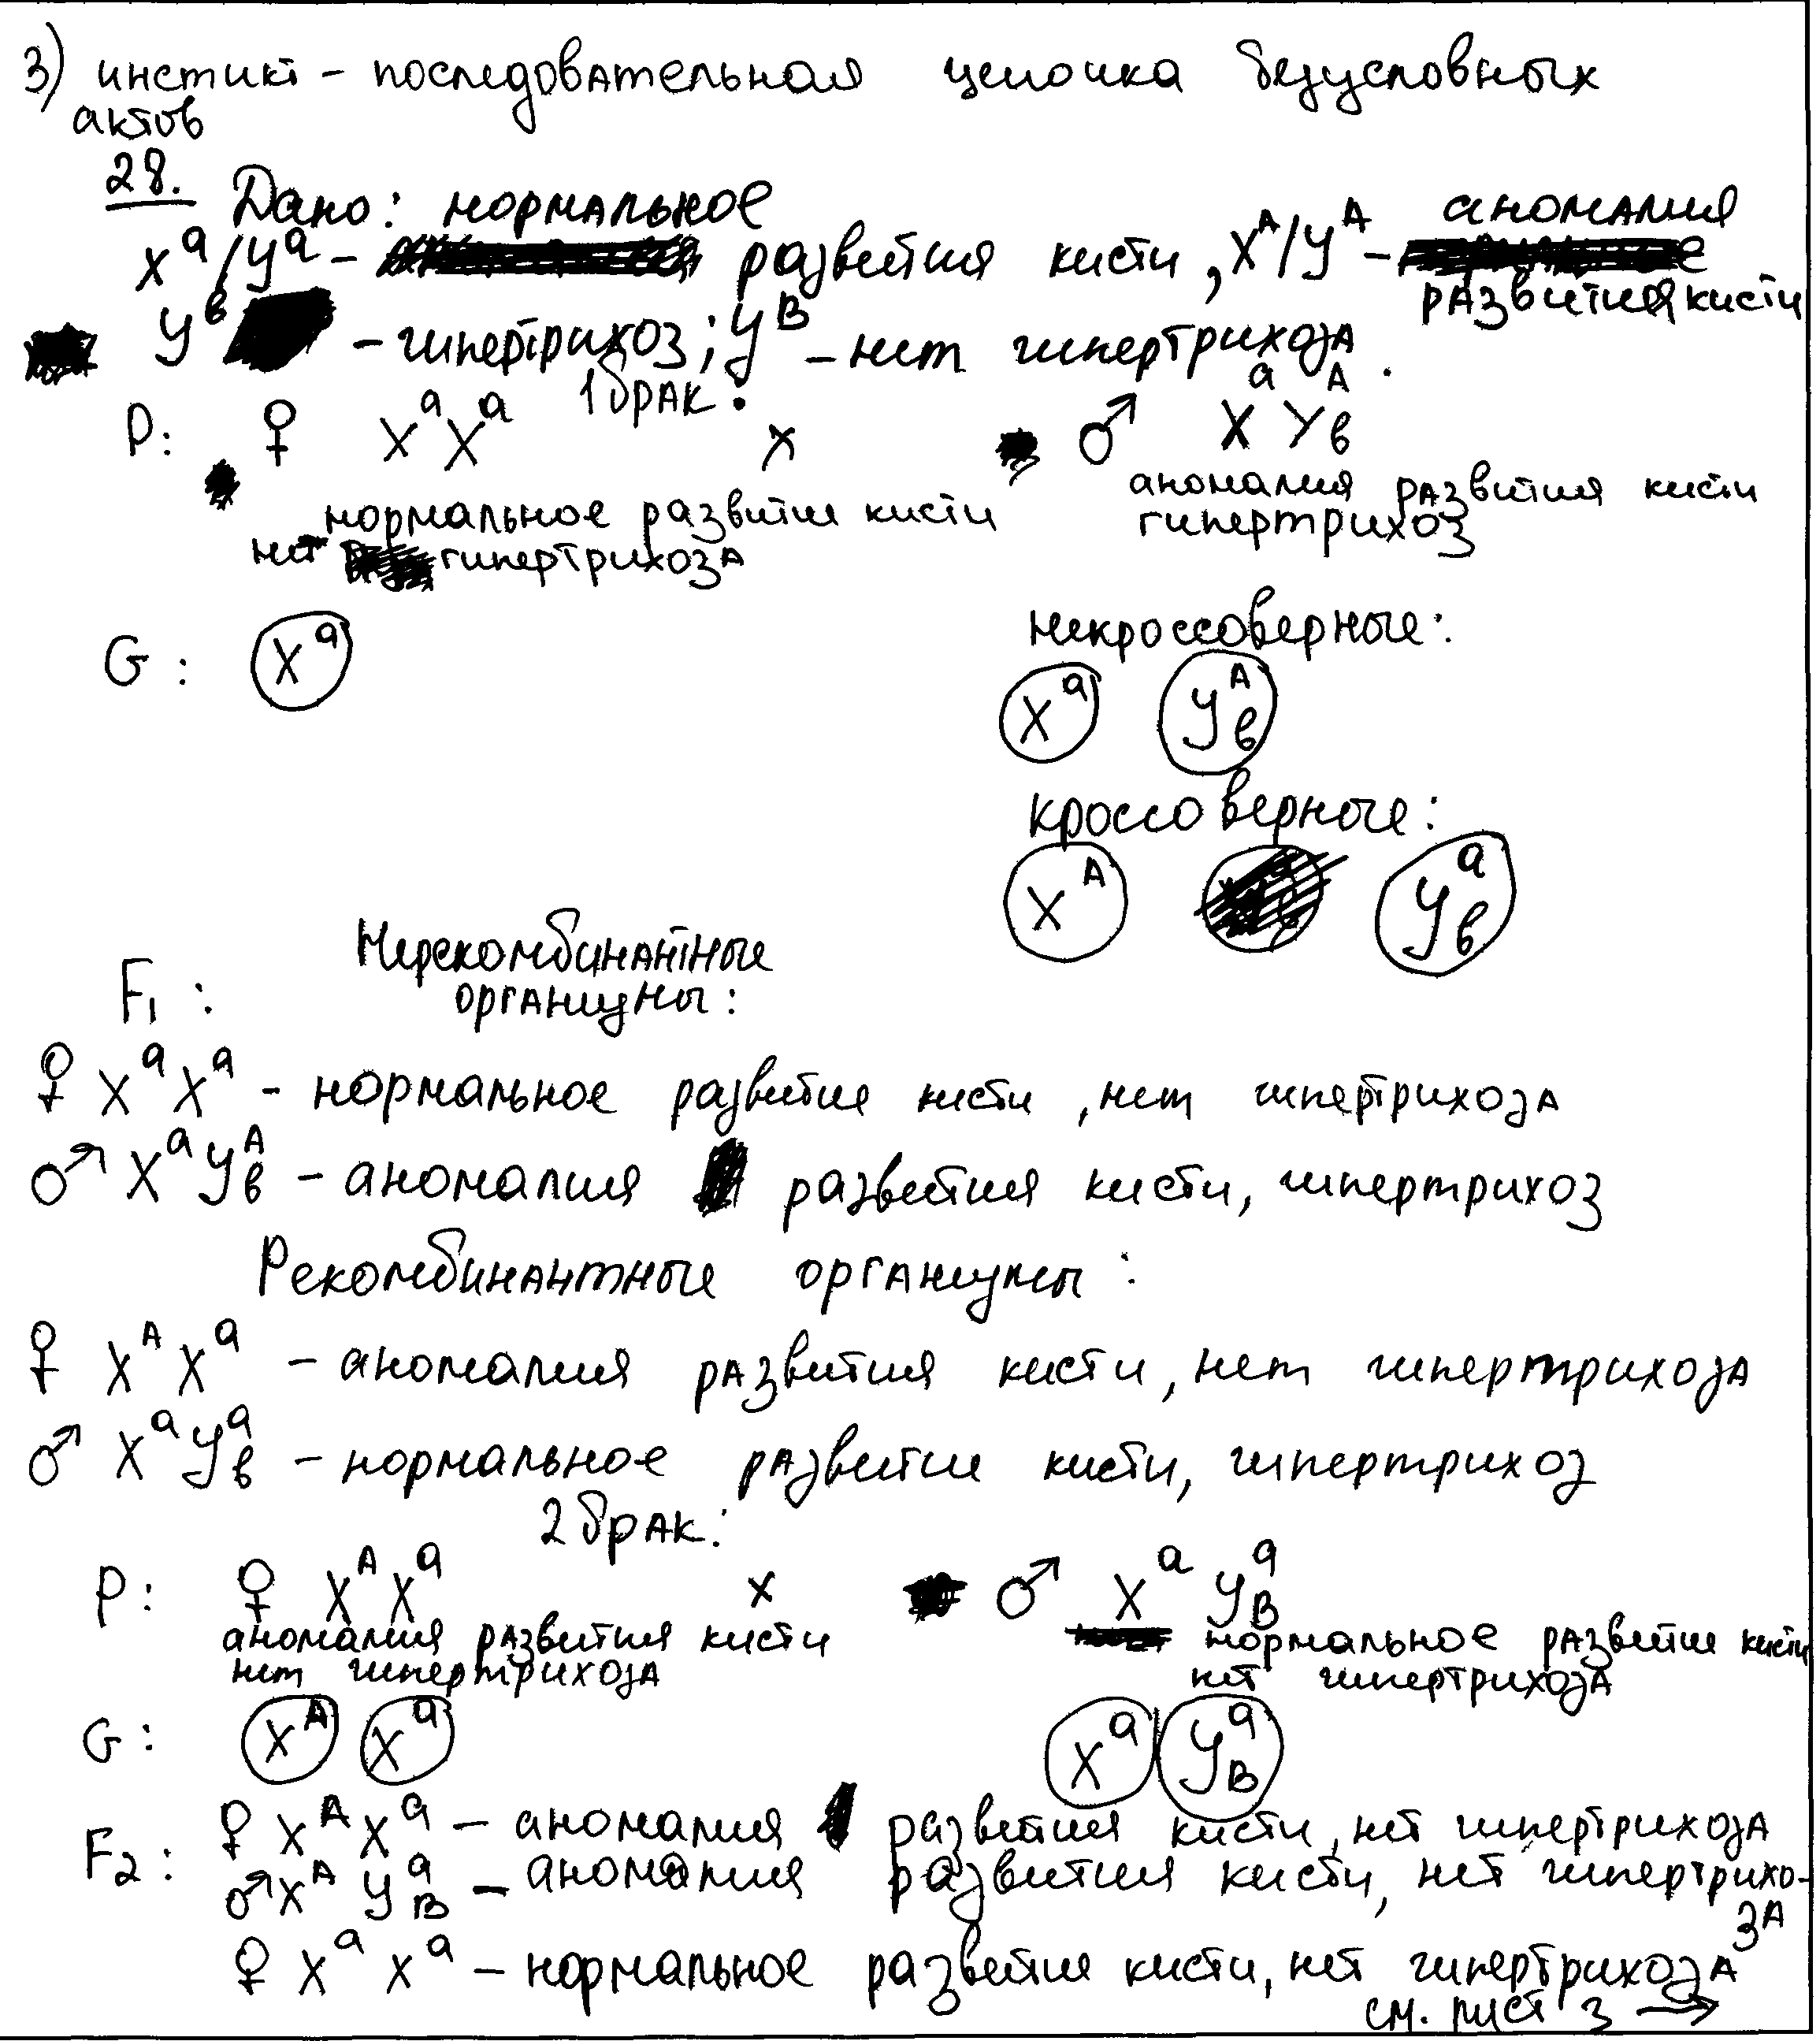 3) инстикт – последовательная цепочка безусловных
актов
28. Дано: нормальное аномалия
Xᵃ/Yᵃ – развития кисти, Xᴬ/Yᴬ – развития кисти
Yᵇ – гипертрихоз; Yᴮ – нет гипертрихоза.
1 брак:
P: ♀ XᵃXᵃ x ♂ XᵃYᴬв
нормальное развитие кисти аномалия развития кисти
нет гипертрихоза гипертрихоз
G: Xᵃ некроссоверные:
Xᵃ Yᴬв
кроссоверные:
Xᴬ Yᵃв
F₁: Нерекомбинантные
организмы:
♀ XᵃXᵃ – нормальное развитие кисти, нет гипертрихоза
♂ XᵃYᴬв – аномалия развития кисти, гипертрихоз
Рекомбинантные организмы:
♀ XᴬXᵃ – аномалия развития кисти, нет гипертрихоза
♂ XᵃYᵃв – нормальное развитие кисти, гипертрихоз
2 брак:
P: ♀ XᴬXᵃ x ♂ XᵃYᵃВ
аномалия развития кисти нормальное развитие кисти
нет гипертрихоза нет гипертрихоза
G: Xᴬ Xᵃ Xᵃ YᵃВ
F₂: ♀ XᴬXᵃ – аномалия развития кисти, нет гипертрихоза
♂ XᴬYᵃВ – аномалия развития кисти, нет гипертрихо-
за
♀ XᵃXᵃ – нормальное развитие кисти, нет гипертрихоза
см. лист 3 →